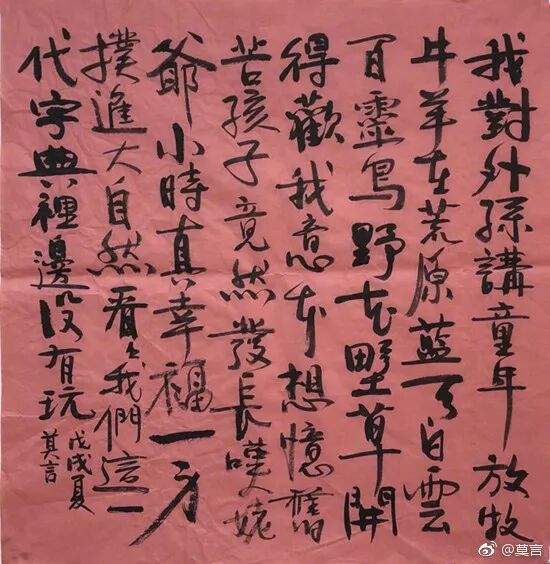 我對外孫講童年放牧
牛羊在荒原藍天白雲
百靈鳥野花野草開
得歡我意本想憶舊
苦孩子竟然發長嘆姥
爺小時真幸福一身
撲進大自然看看我們這一
代字典裡邊沒有玩
戊戌夏
莫言
@莫言